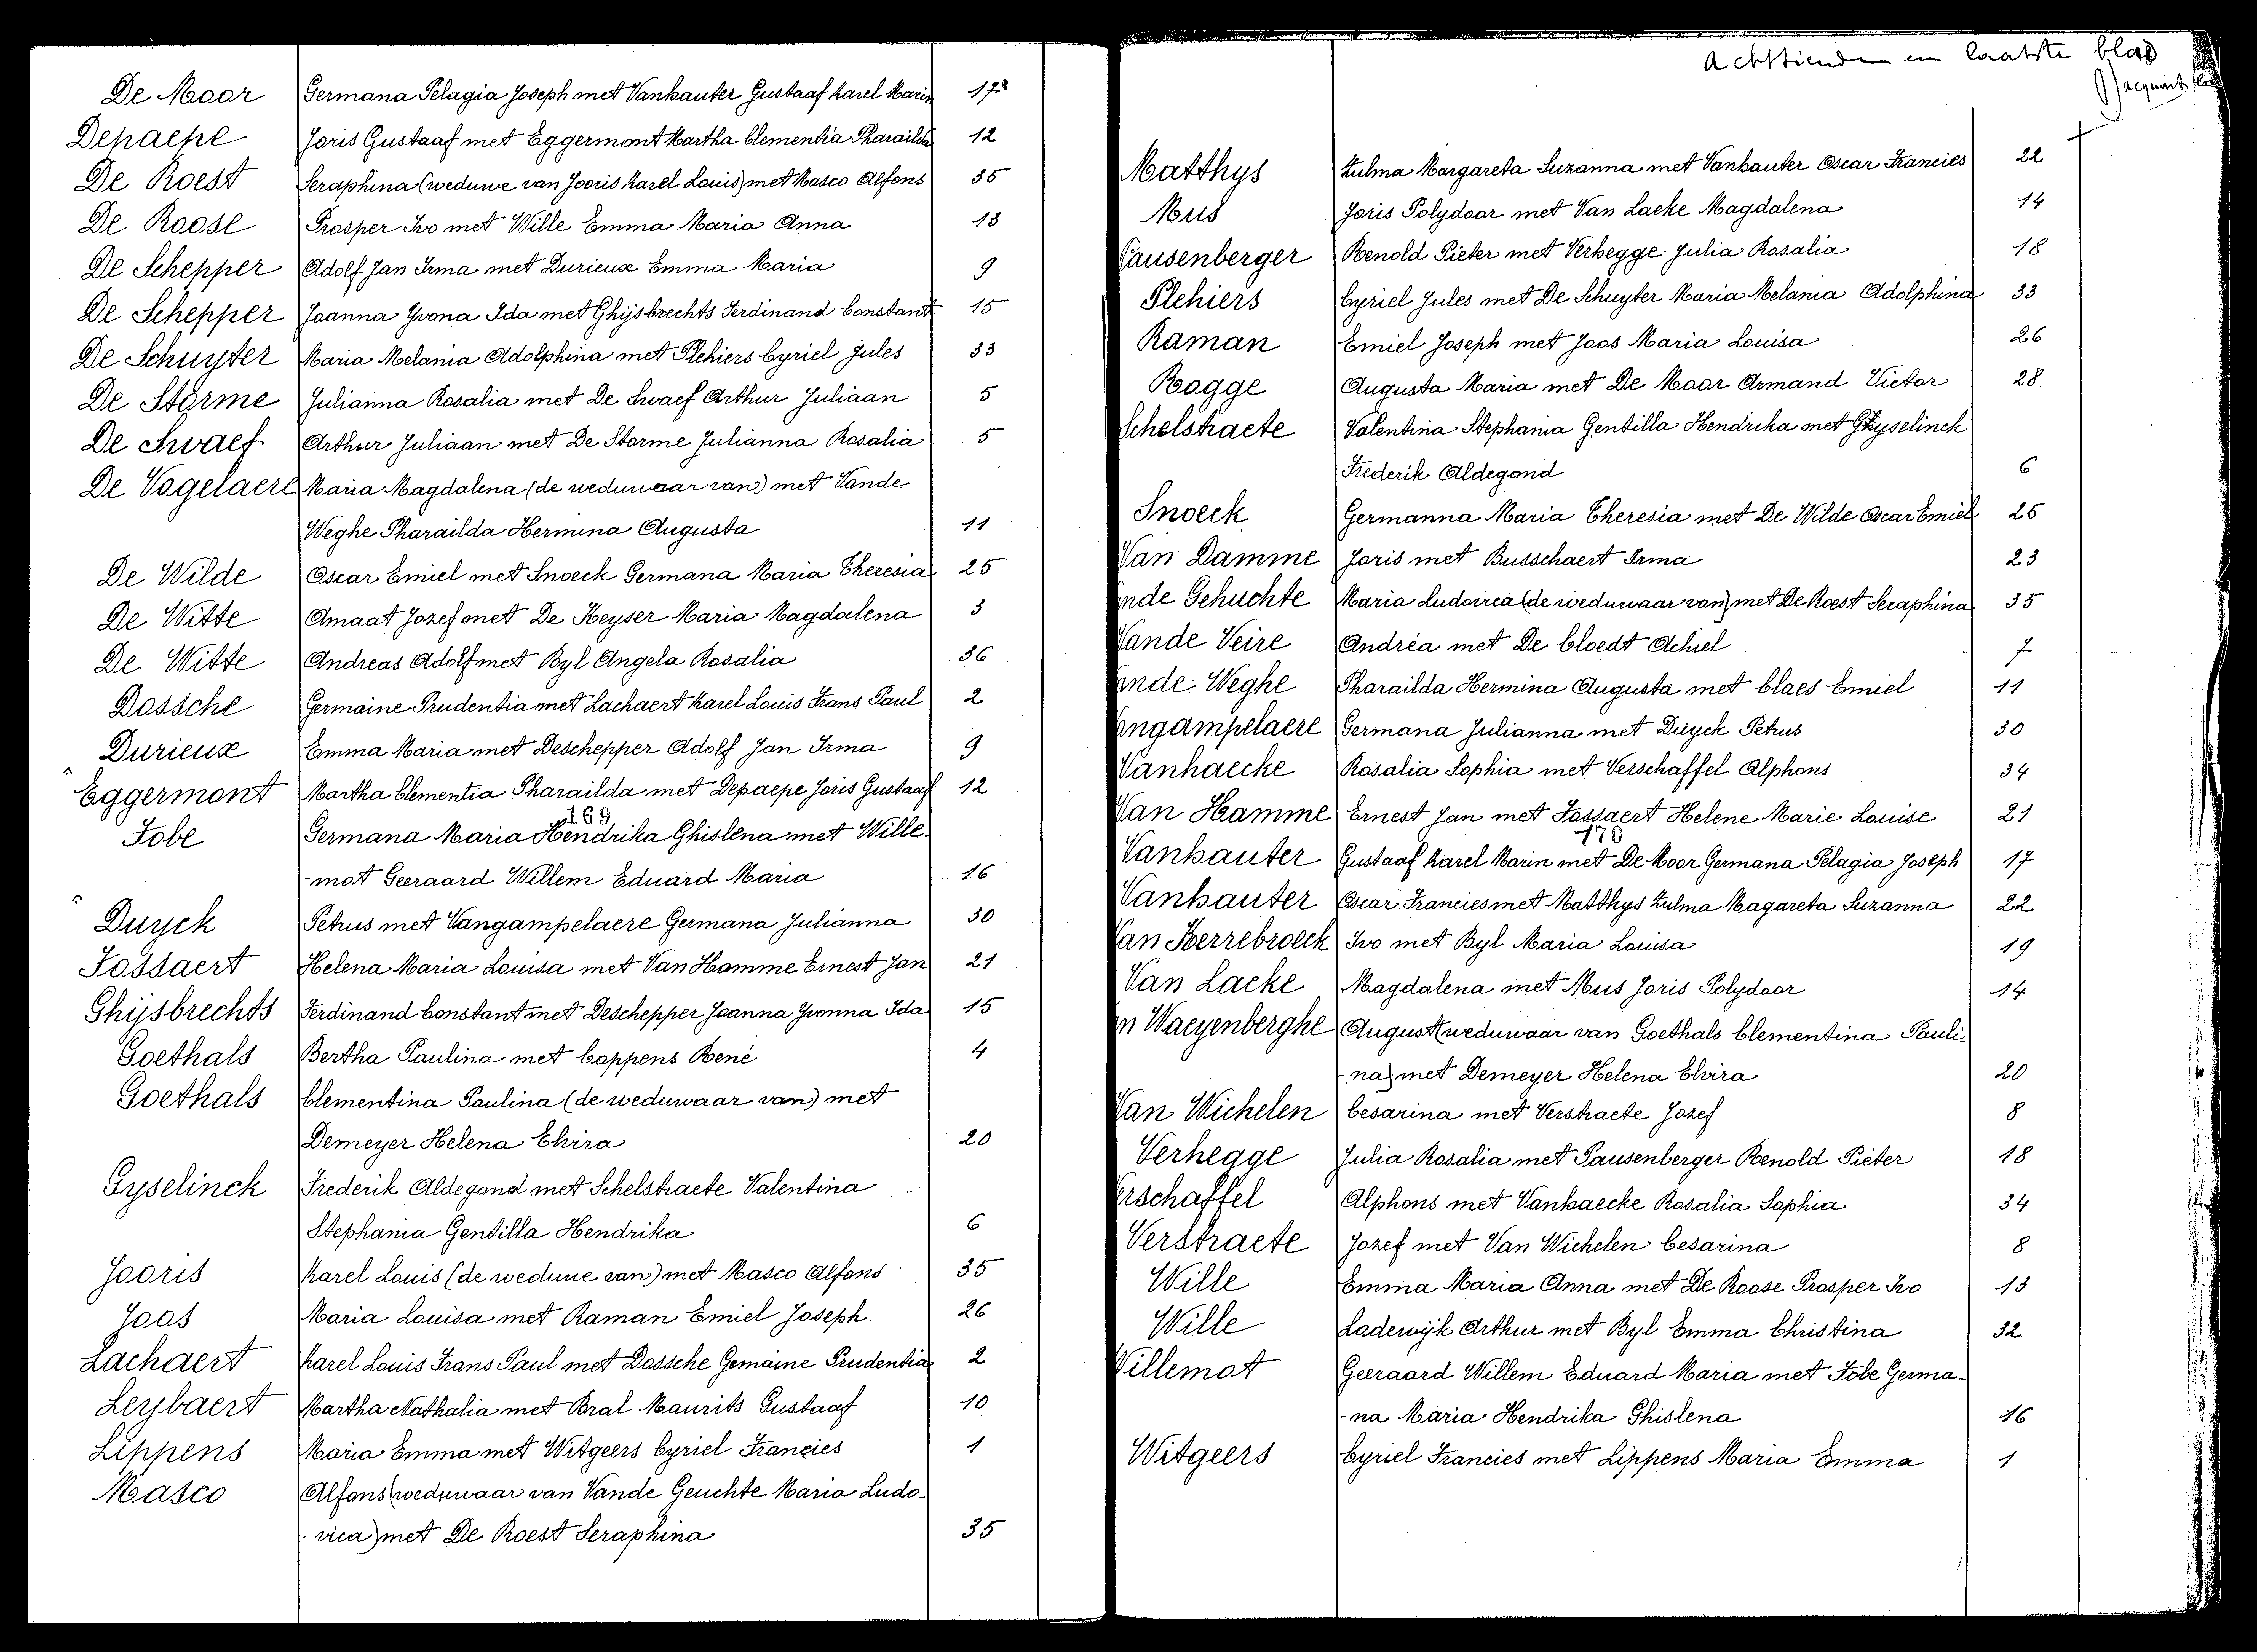 De Moor Germana Pelagia Joseph met Vanhauter Gustaaf Karel Marin 17
Depaepe Joris Gustaaf met Eggermont Martha Clementia Pharailda 12
De Roest Seraphina (weduwe van Jooris Karel Louis) met Masco Alfons 35
De Roose Prosper Ivo met Wille Emma Maria Anna 13
De Schepper Adolf Jan Irma met Durieux Emma Maria 9
De Schepper Joanna Yvona Ida met Ghijsbrechts Ferdinand Constant 15
De Schuyter Maria Melania Adolphina met Plehiers Cyriel Jules 33
De Storme Julianna Rosalia met De Swaef Arthur Juliaan 5
De Swaef Arthur Juliaan met De Storme Julianna Rosalia 5
De Vogelaere Maria Magdalena (de weduwaar van) met Vande
Weghe Pharailda Hermina Augusta 11
De Wilde Oscar Emiel met Snoeck Germana Maria Theresia 25
De Witte Amaat Jozef met De Keyser Maria Magdalena 3
De Witte Andreas Adolf met Byl Angela Rosalia 36
Dossche Germaine Prudentia met Lachaert Karel Louis Frans Paul 2
Durieux Emma Maria met Deschepper Adolf Jan Irma 9
Eggermont Martha Clementia Pharailda met Depaepe Joris Gustaaf 12
169
Fobe Germana Maria Hendrika Ghislena met Wille-
-mot Geeraard Willem Eduard Maria 16
Duyck Petrus met Vangampelaere Germana Julianna 30
Fossaert Helena Maria Louisa met Van Hamme Ernest Jan 21
Ghijsbrechts Ferdinand Constant met Deschepper Joanna Yvonna Ida 15
Goethals Bertha Paulina met Cappens René 4
Goethals Clementina Paulina (de weduwaar van) met
Demeyer Helena Elvira 20
Gyselinck Frederik Aldegond met Schelstraete Valentina
Stephania Gentilla Hendrika 6
Jooris Karel Louis (de weduwe van) met Masco Alfons 35
Joos Maria Louisa met Raman Emiel Joseph 26
Lachaert Karel Louis Frans Paul met Dossche Gemaine Prudentia 2
Leybaert Martha Nathalia met Bral Maurits Gustaaf 10
Lippens Maria Emma met Witgeers Cyriel Francies 1
Masco Alfons (weduwaar van Vande Geuchte Maria Ludo-
-vica) met De Roest Seraphina 35
Achttiende en laatste blad
Matthys Zulma Margareta Suzanna met Vanhauter Oscar Francies 22
Mus Joris Polydoor met Van Laeke Magdalena 14
Pausenberger Renold Pieter met Verhegge Julia Rosalia 18
Plehiers Cyriel Jules met De Schuyter Maria Melania Adolphina 33
Raman Emiel Joseph met Joos Maria Louisa 26
Rogge Augusta Maria met De Moor Armand Victor 28
Schelstraete Valentina Stephania Gentilla Hendrika met Gyselinck
Frederik Aldegond 6
Snoeck Germanna Maria Theresia met De Wilde Oscar Emiel 25
Van Damme Joris met Busschaert Irma 23
nde Gehuchte Maria Ludovica (de weduwaar van) met De Roest Seraphina 35
Vande Veire Andréa met De Cloedt Achiel 7
nde Weghe Pharailda Hermina Augusta met Claes Emiel 11
ngampelaere Germana Julianna met Duyck Petrus 30
Vanhaecke Rosalia Sophia met Verschaffel Alphons 34
Van Hamme Ernest Jan met Fossaert Helene Marie Louise 21
170
Vanhauter Gustaaf Karel Marin met De Moor Germana Pelagia Joseph 17
Vanhauter Oscar Francies met Matthys Zulma Magareta Suzanna 22
Van Kerrebroeck Ivo met Byl Maria Louisa 19
Van Laeke Magdalena met Mus Joris Polydoor 14
n Waeyenberghe August (weduwaar van Goethals Clementina Pauli-
na) met Demeyer Helena Elvira 20
Van Wichelen Cesarina met Verstraete Jozef 8
Verhegge Julia Rosalia met Pausenberger Renold Pieter 18
erschaffel Alphons met Vanhaecke Rosalia Sophia 34
Verstraete Jozef met Van Wichelen Cesarina 8
Wille Emma Maria Anna met De Roose Prosper Ivo 13
Wille Lodewijk Arthur met Byl Emma Christina 32
Willemot Geeraard Willem Eduard Maria met Fobe Germa-
-na Maria Hendrika Ghislena 16
Witgeers Cyriel Francies met Lippens Maria Emma 1